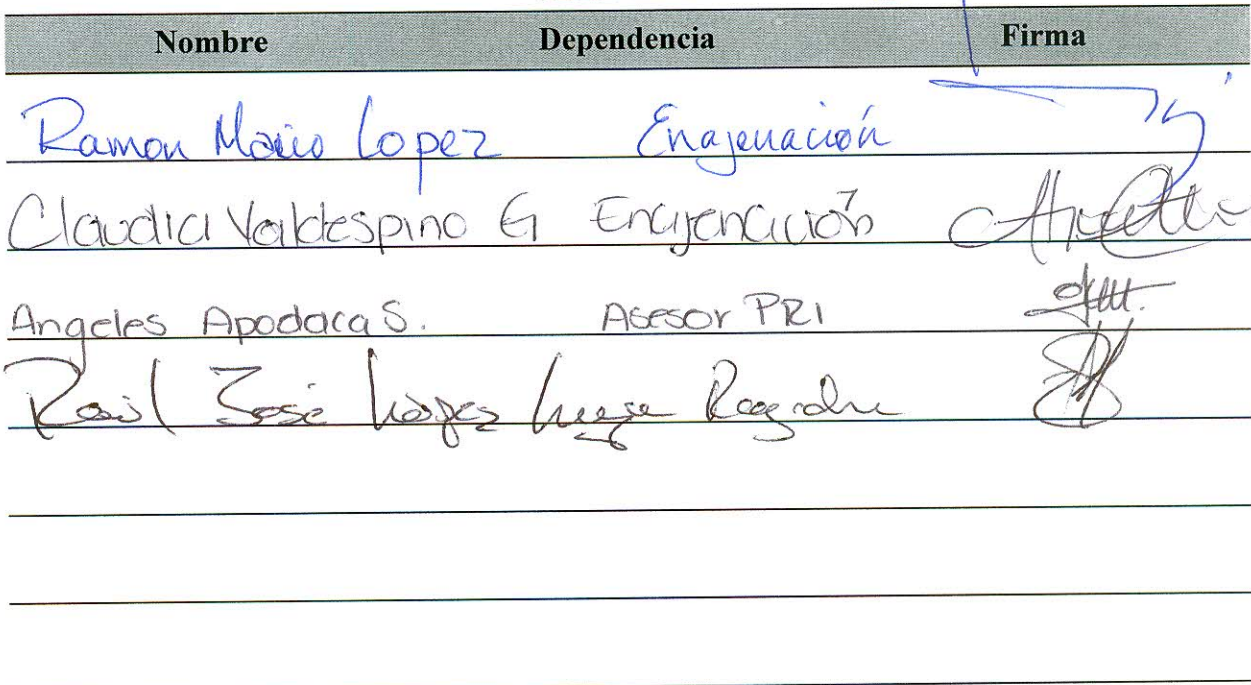 Nombre Dependencia Firma
Ramon Mario Lopez Enajenación
Claudia Valdespino G Enajenación
Angeles Apodaca S. Asesor PRI
Raúl José López